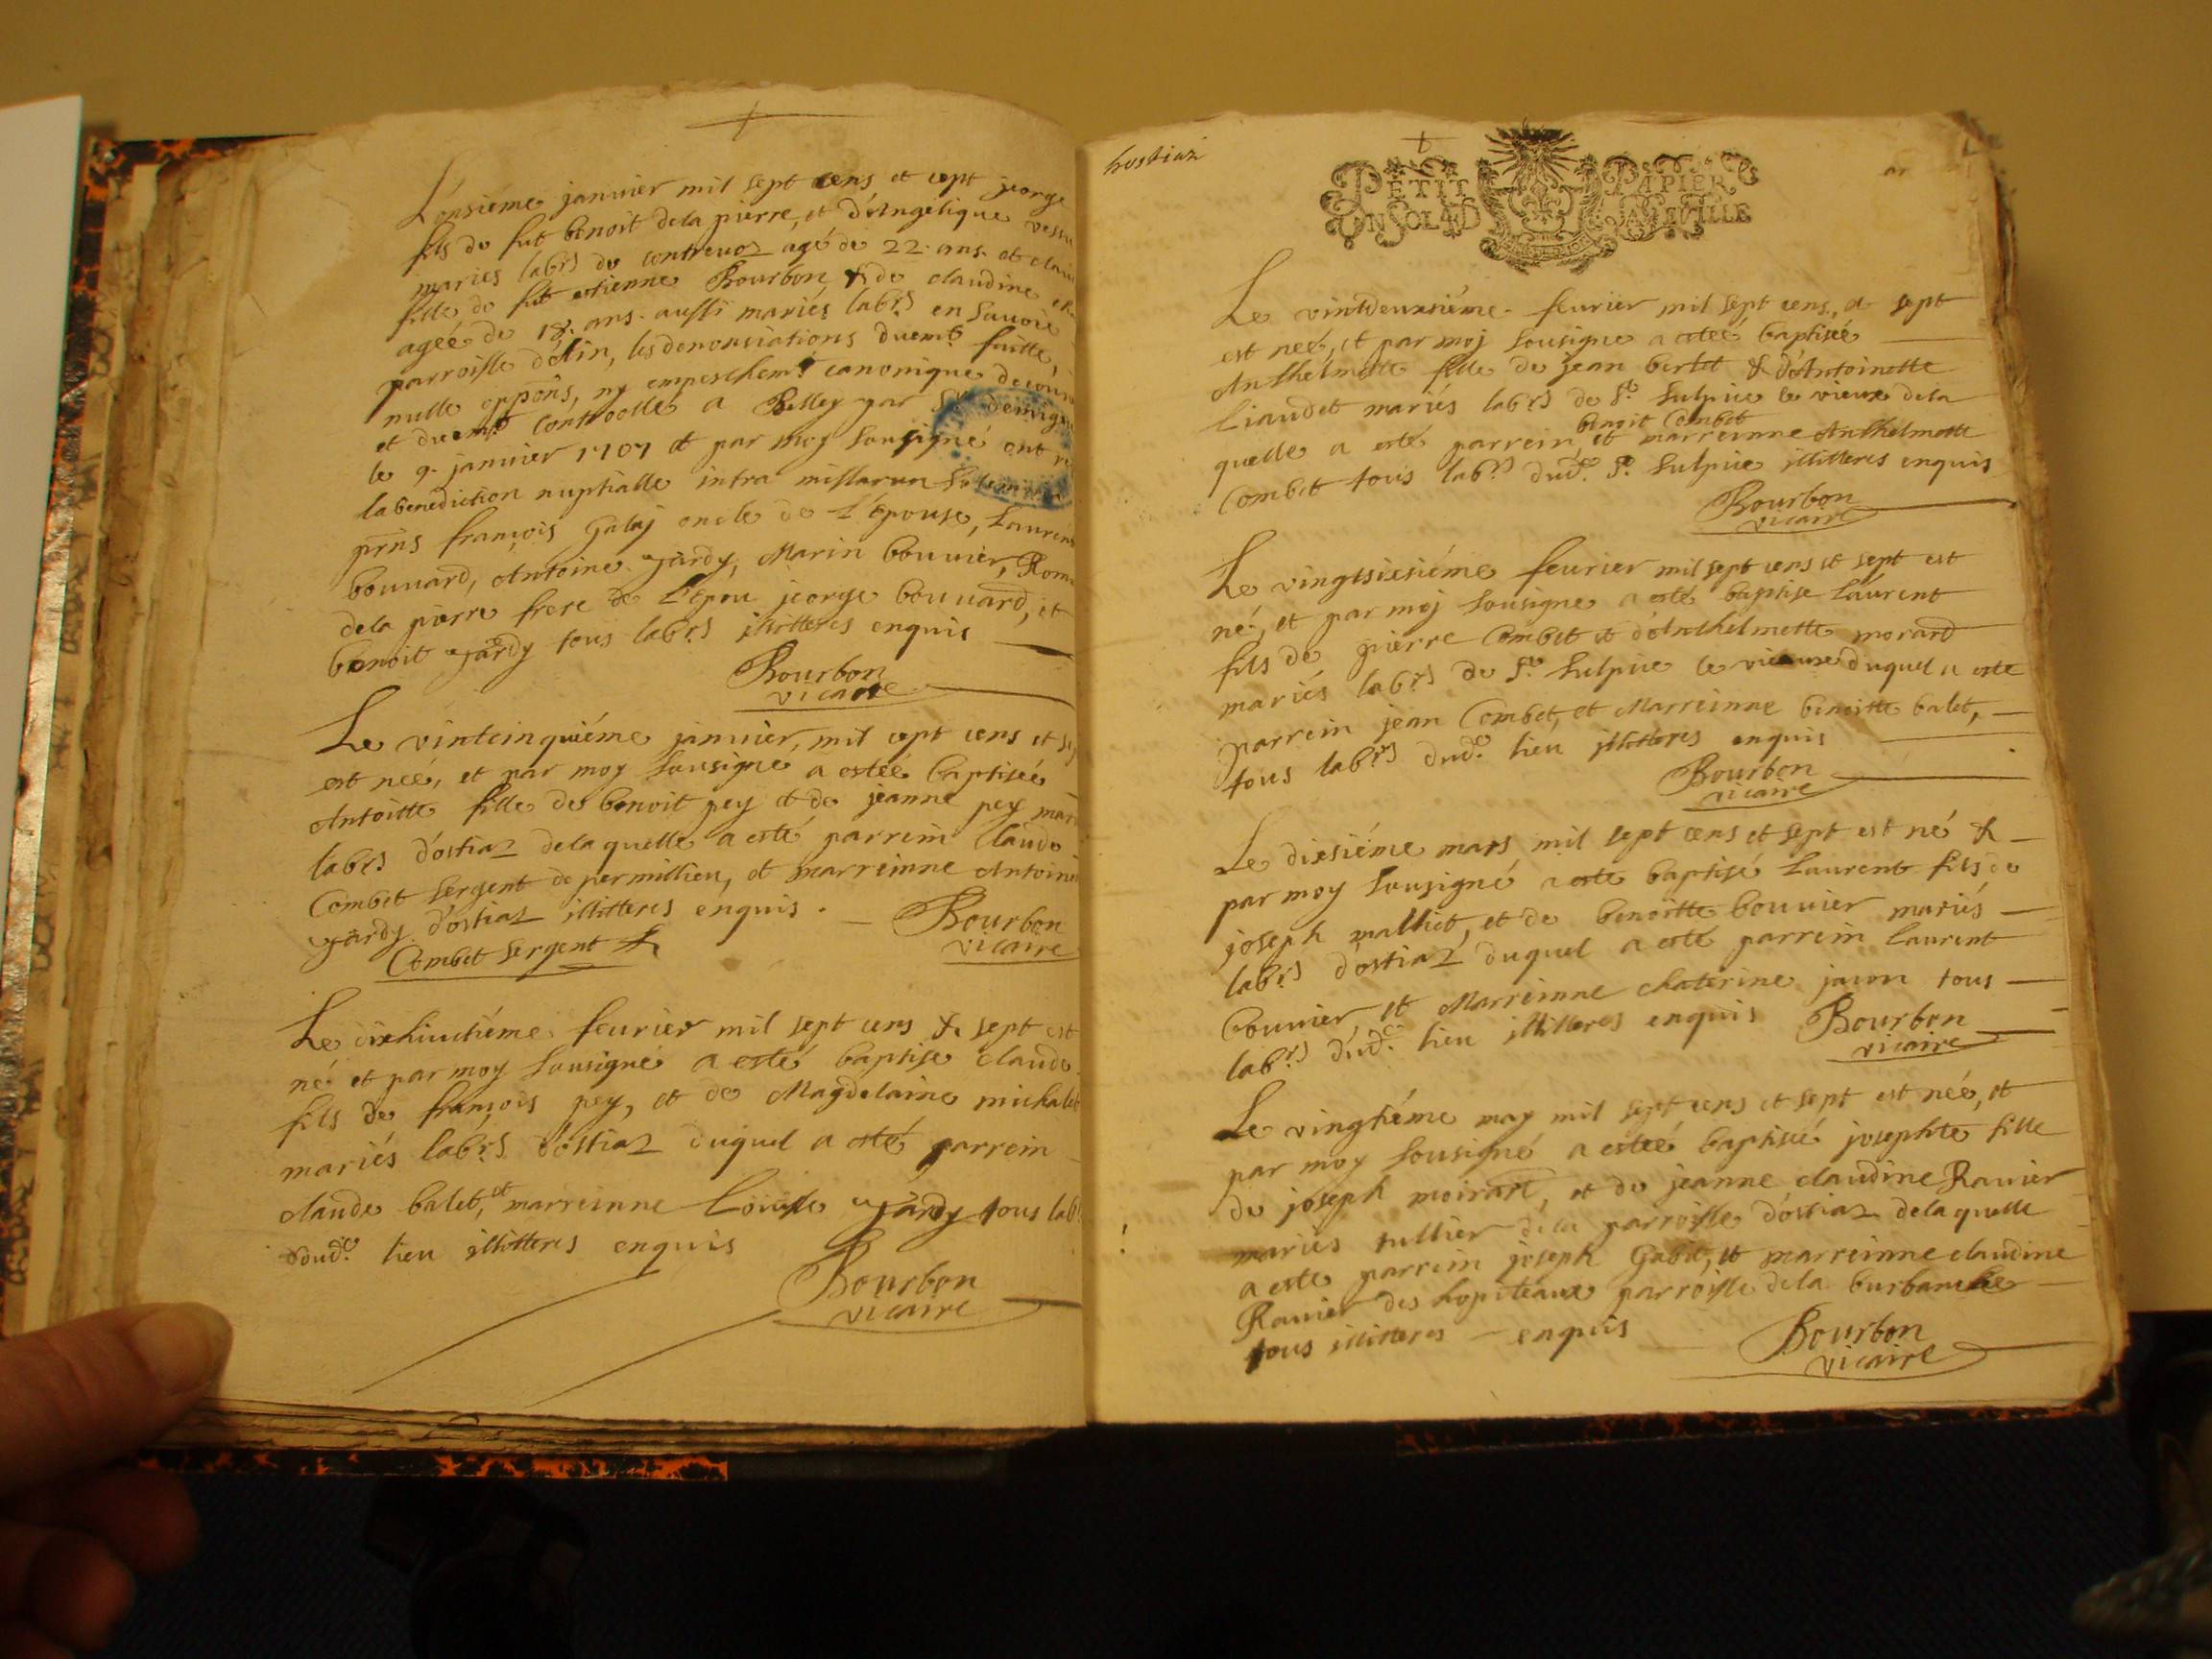 L'onsiéme januier mil sept cens et sept jeorge
fils de fut benoit dela pierre, et d'Angélique
mariés labrs de contreuoz agé de 22 ans. et
fille de fut estienne Bourbon & de claudine
agéé de 18. ans. aussi mariés labrs en Sauoie
parroisse d'olin, les denonsiations duemt faitte,
nulle oppons, ny empeschemt canonique
et duemt Controollé a Belley par Sr
le 9. januier 1707 et par moy Sousigné ont
la benediction nuptialle intra missarum
prns françois Galaj oncle de l'épouse,
bouuard, Antoine jardy, Marin bouuier,
dela pierre frere de l'épou jeorge bouuard, et
benoit jardy tous labrs illitteres enquis
Bourbon
vicaire
Le vinteinquiéme januier, mil sept cens et
est néé, et par moy Sousigne a estéé baptiséé
Antoitte fille de benoit pey et de jeanne pey
labrs d'ostiaz dela quelle a esté parrein Claude
Combet Sergent de permillieu, et marreinne
jardy d'ostiaz illitteres enquis.
Bourbon
vicaire
Combet Sergent
Le dixhuictiéme feurier mil sept cens & sept est
né et par moy Sousigné a esté baptise claude
fils de françois pey, et de Magdelaine michalet
mariés labrs d'ostiaz duquel a esté parrein
claude balet, et marreinne Loüise jardy tous labrs
dudt. lieu illitteres enquis
Bourbon
vicaire
hostiaz
PETIT PAPIER
UN SOL 4 D LA FEUILLE
Le vintdeuxsiéme feurier mil sept cens, et sept
est néé, et par moj Sousigne a estéé baptiséé
Anthelmette fille de jean bertet & d'Antoinette
Liaudet mariés labrs de St. Sulpice le vieux dela
benoit Combet
quelle a esté parrein et marreinne Anthelmette
Combet tous labrs dudt. St. Sulpice illitteres enquis
Bourbon
vicaire
Le vingtsixsiéme feurier mil sept cens et sept est
né, et par moj Sousigne a esté baptise Laurent
fils de pierre Combet et d'Anthelmette morard
mariés labrs de St. Sulpice le vieuxe duquel a esté
parrein jean Combet, et Marreinne benoitte balet,
tous labrs dudt. lieu illitteres enquis
Bourbon
vicaire
Le dixsiéme mars mil sept cens et sept est né &
par moy Sousigné a esté baptisé Laurent fils de
joseph malliet, et de benoitte bouuier mariés
labrs d'ostiaz duquel a esté parrein Laurent
bouuier, et Marreinne chaterine jauon tous
labrs dudt. lieu illitteres enquis
Bourbon
vicaire
Le vingtiéme may mil sept cens et sept est néé, et
par moy Sousigné a estéé baptiséé josephte fille
de joseph et de jeanne claudine Rauier
mariés tullier dela parroisse d'ostiaz dela quelle
a este parrein joseph Gabit, et marreinne claudine
Rauier des hopiteaux parroisse dela burbanche
tous illitteres enquis
Bourbon
vicaire